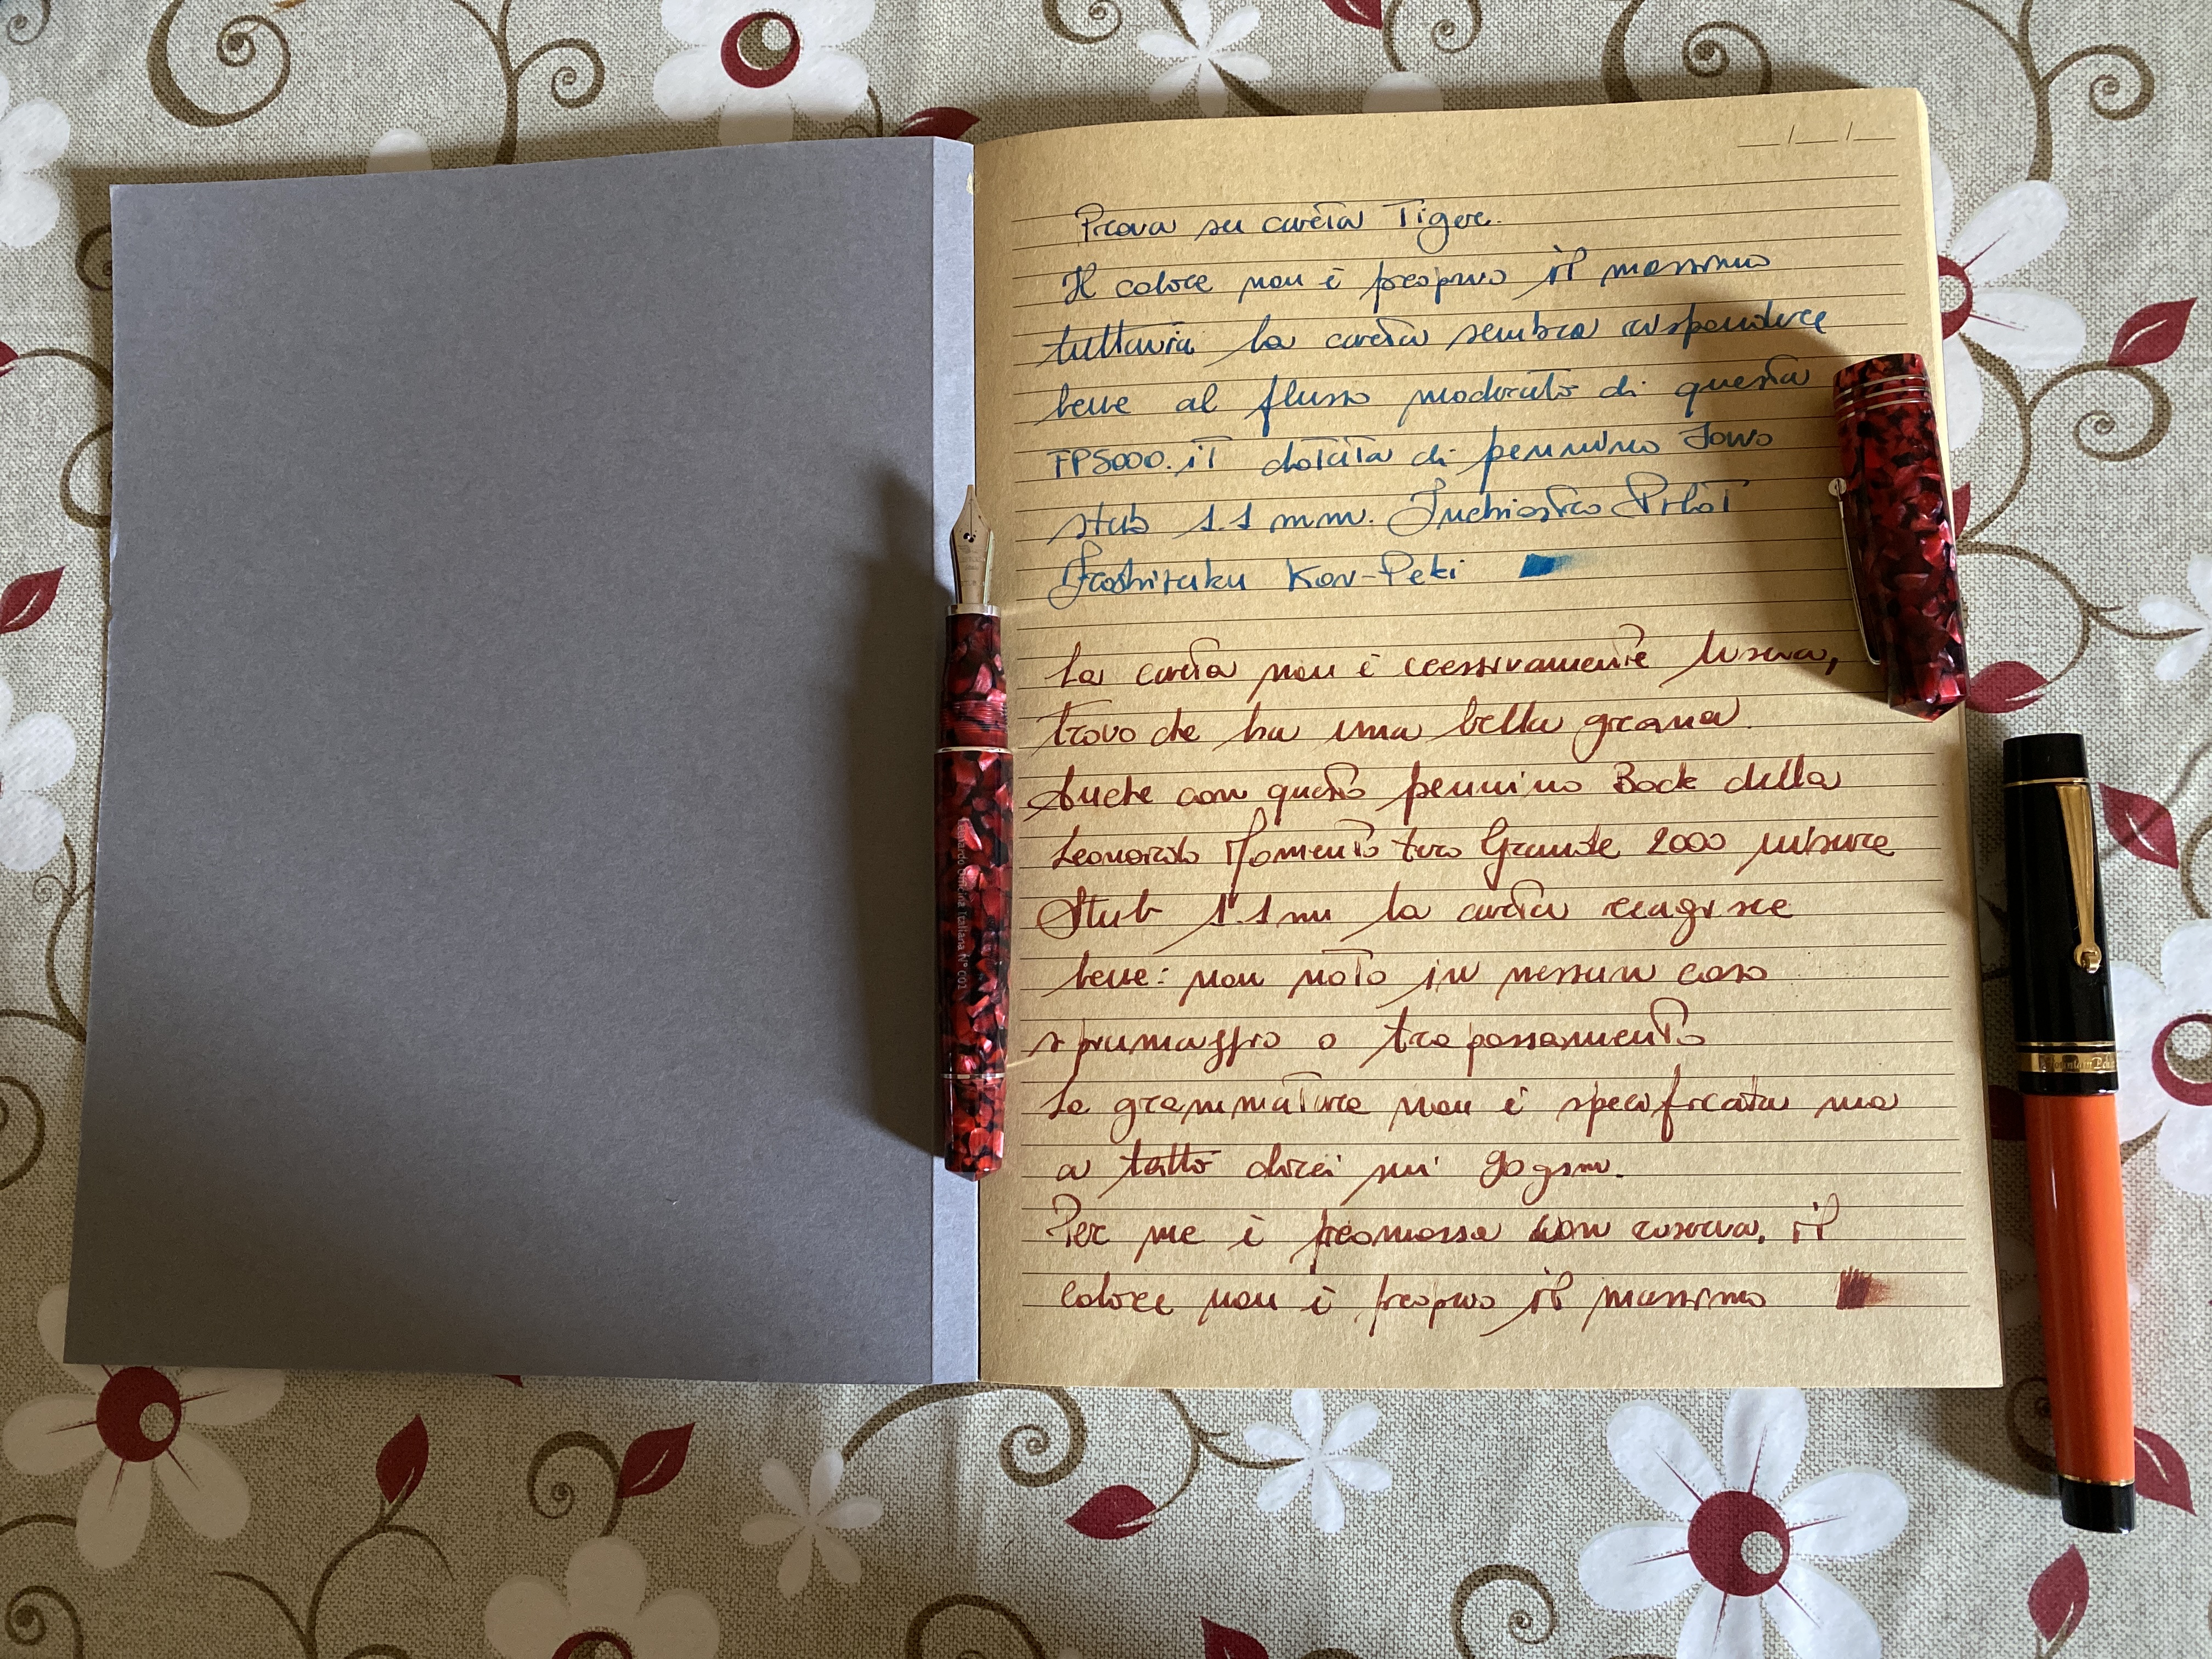 __/__/__
Prova su carta Tiger.
Il colore non è proprio il massimo
tuttavia la carta sembra rispondere
bene al flusso moderato di questa
FP5000.it dotata di pennino Jowo
stub 1.1 mm. Inchiostro Pilot
Iroshizuku Kon-Peki
La carta non è eccessivamente liscia,
trovo che ha una bella grana.
Anche con questo pennino Bock della
Leonardo Momento Zero Grande 2000 misure
Stub 1.1 mm la carta reagisce
bene: non noto in nessun caso
spiumaggio o trapassamento
La grammatura non è specificata ma
a tatto direi sui 90 gsm.
Per me è promossa con riserva, il
colore non è proprio il massimo
Leonardo Officina Italiana N° 001
Fountain